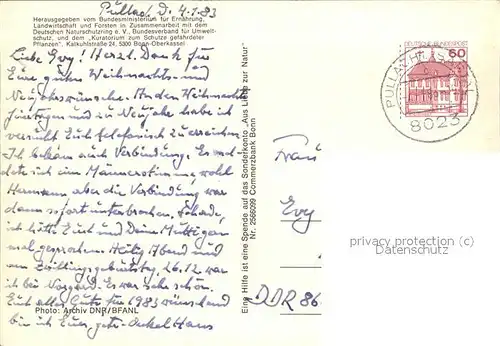 Pullach, D. 4.1.83
Herausgegeben vom Bundesministerium für Ernährung,
Landwirtschaft und Forsten in Zusammenarbeit mit dem
Deutschen Naturschutzring e. V., Bundesverband für Umwelt-
schutz, und dem „Kuratorium zum Schutze gefährdeter
Pflanzen", Kalkuhlstraße 24, 5300 Bonn-Oberkassel
Liebe Evy! Herzl. Dank für
Eure guten Weihnachts- und
Neujahrswünsche. An den Weihnachts-
feiertagen und zu Neujahr habe ich
versucht Euch telefonisch zu erreichen.
Ich bekam auch Verbindung. Es mel-
dete sich eine Männerstimme, wohl
Hermann aber die Verbindung war
dann sofort unterbrochen. Schade,
ich hätte Euch und Deine Mutti gern
mal gesprochen. Heilig Abend und
am Zwillingsgeburtstag 26.12. war
ich bei Es war sehr schön.
Euch alles Gute für 1983 wünschend
bin ich Euer Onkel Hans
Photo: Archiv DNR/BFANL
Eine Hilfe ist eine Spende auf das Sonderkonto „Aus Liebe zur Natur"
Nr. 2566099 Commerzbank Bonn
DEUTSCHE BUNDESPOST
60
PULLACH I. ISARTAL
8023
Frau
Evy
DDR 86
privacy protection (c)
Datenschutz